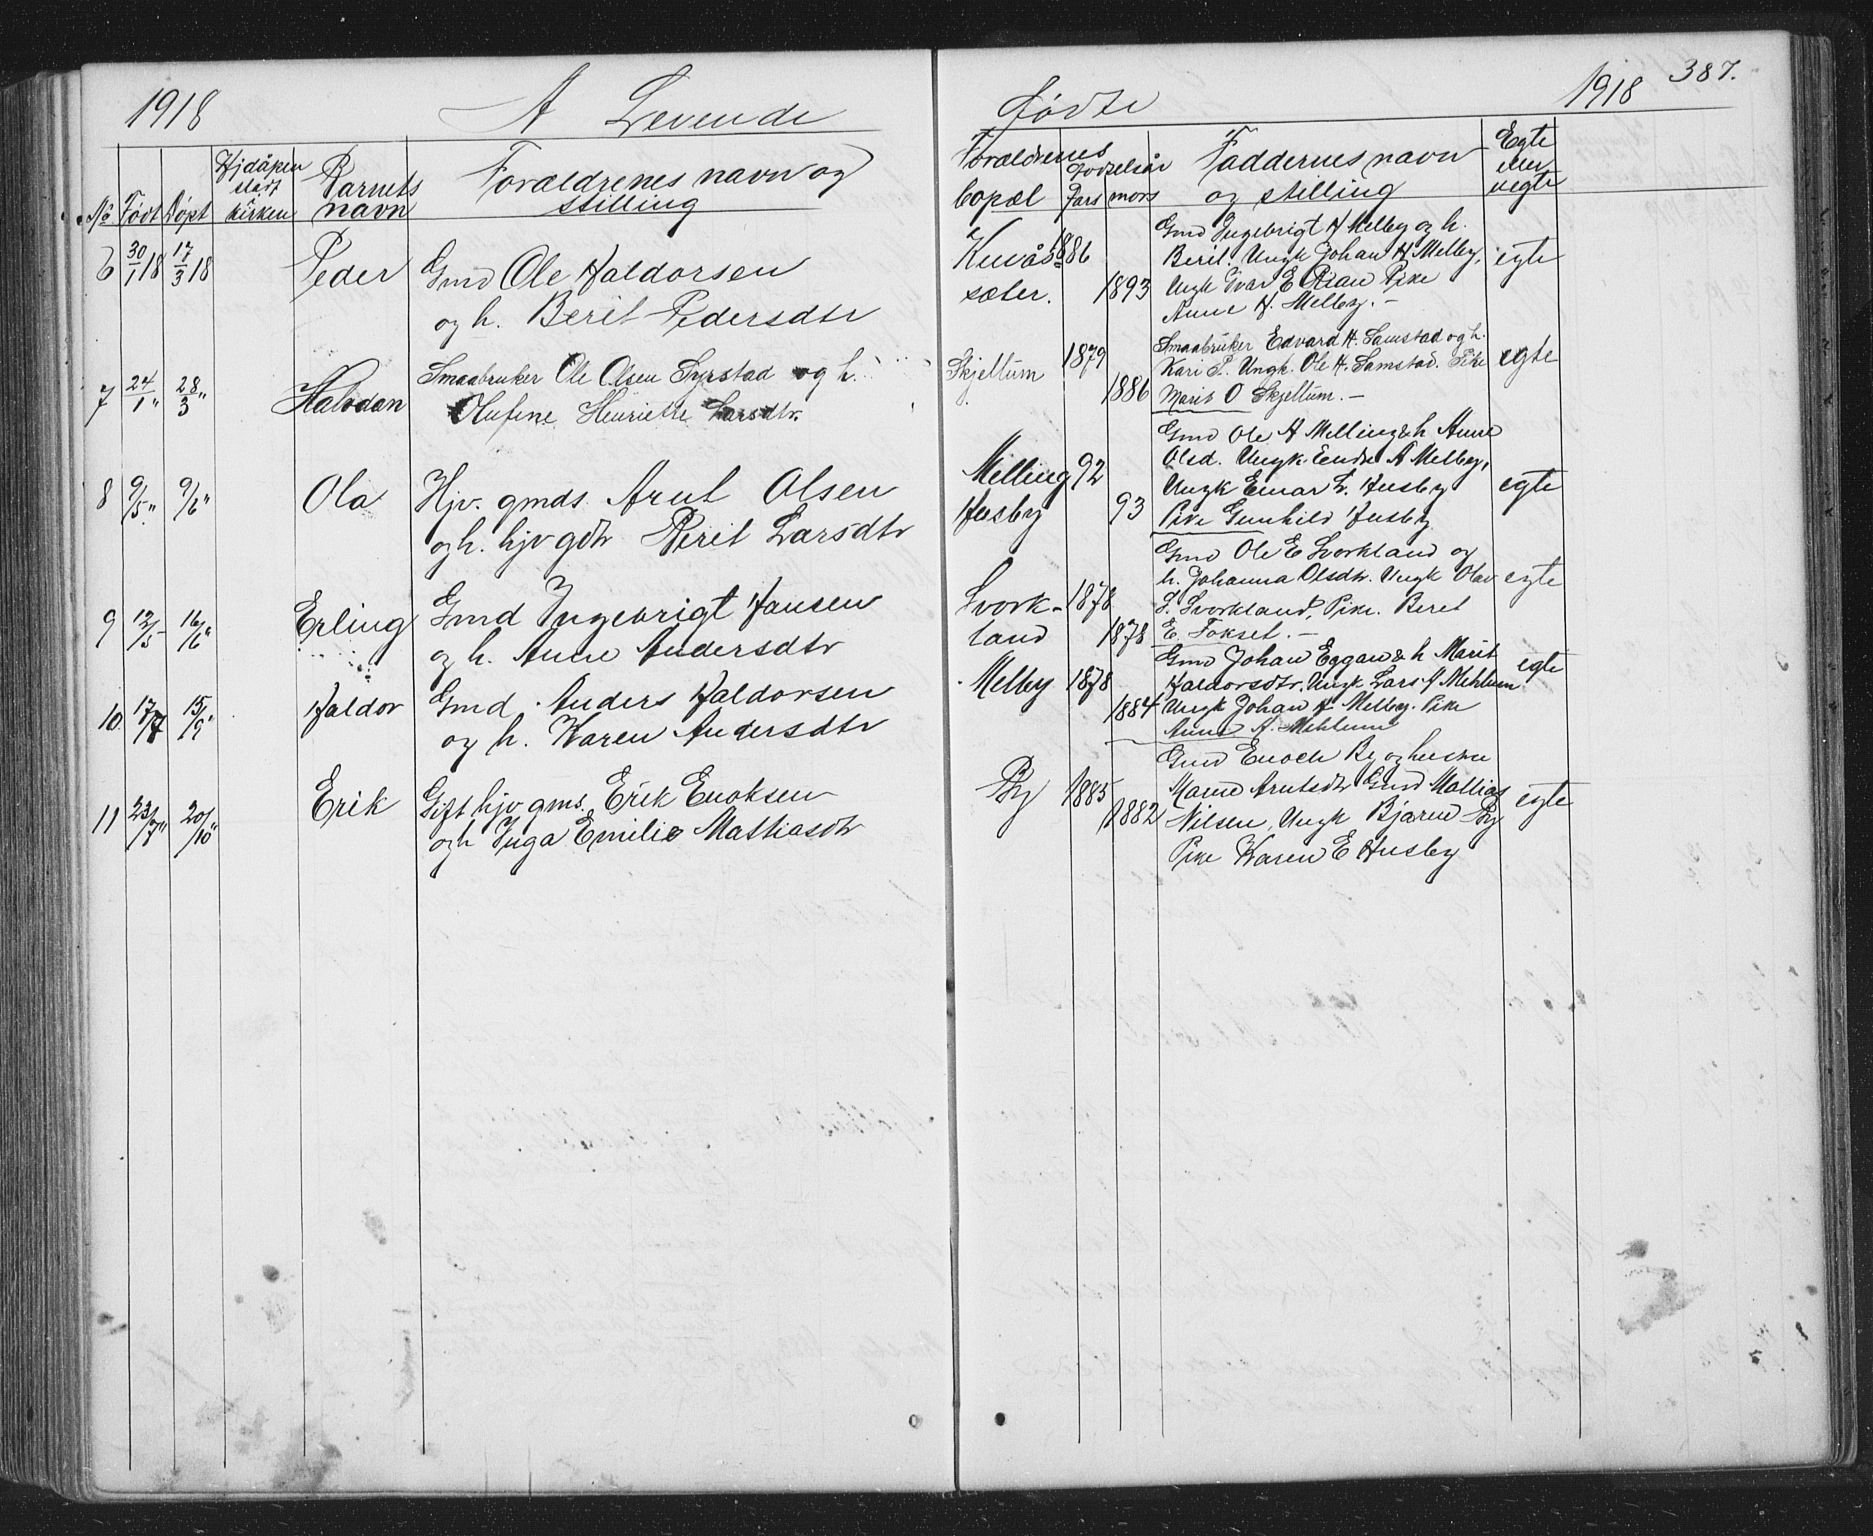 1918
A Levende
No
Født
Døpt
Hjdåpen
stadf
kirken
Barnets
navn
Forældrenes navn og
stilling
6 30/1 18 17/3 18 Peder Gmd Ole Haldorsen
og h. Berit Pedersdtr
7 24/1 " 28/3 " Halvdan Smaabruker Ole Olsen Syrstad og h.
Olufine Henriette Larsdtr.
8 9/5 " 9/6 " Ola Hjv. gmds. Arnt Olsen
og h. hjv gdtr Berit Larsdtr
9 12/5 - 16/6 " Erling Gmd Ingebrigt Jansen
og h. Anne Andersdtr
10 17/7 15/9 " Haldor Gmd Anders Haldorsen
og h. Karen Andersdtr
11 23/7 " 20/10 " Erik Gift hjv. gms. Erik Enoksen
og h Inga Emilie Mathiasdtr
Fødte
1918 387.
Forældrenes
bopæl
Fødselsår
Fars mors
Faddernes navn
og stilling
Egte
eller
uegte
Kuvås
sæter.
1886
1893
Gmd Ingebrigt H Melby og h.
Berit. Ungk Johan H Melby,
Ungk Ivar E Pike
Anne H. Melby. -
egte
Skjellum
1879
1886
Smaabruker Edvard H. Samstad og h.
Kari P. Ungk. Ole H. Samstad. Pike
Marit O Skjellum. -
egte
Melling
Husby
92
93
Gmd Ole A Melling & h Anne
Olsd. Ungk. Endre A Melby,
Ungk Einar L. Husby
Pike Gunhild Husby
egte
Svork-
land
1878
1878
Gmd Ole E Svorkland og
h. Johanna Olsdtr. Ungk Olav
S. Svorkland, Pike. Beret
E. Fokset. -
egte
Melby
1878
1884
Gmd Johan Eggan & h Marit
Haldorsdtr. Ungk Lars A Mehlum
Ungk Johan H Melby. Pike
Anne A. Mehlum
egte
By
1885
1882
Gmd Enoch By og hustru
Marie Arntsdtr Gmd Mathias
Nilsen, Ungk Bjarne By
Pike Karen E Husby
egte